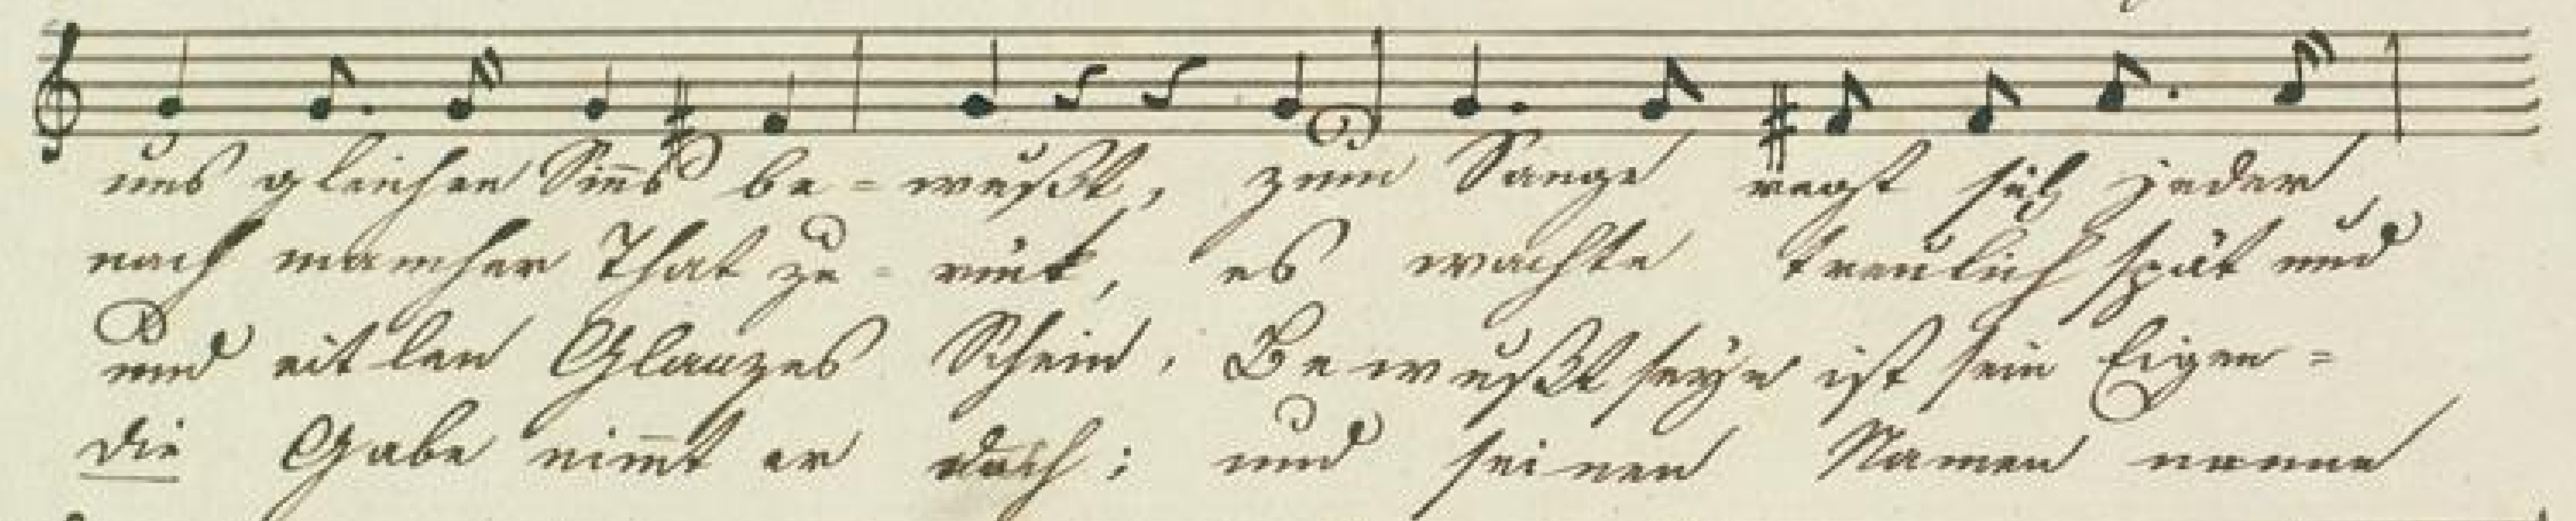 uns gleichen Sin̅s be - wußt, zum Sange regt sich jeder
nach mancher That zu - rück, es wachte treulich spät und
und eitlen Glanzes Schein, Bewußtseyn ist sein Eigen =
die Gabe nim̅t er doch; und seinen Namen nenne